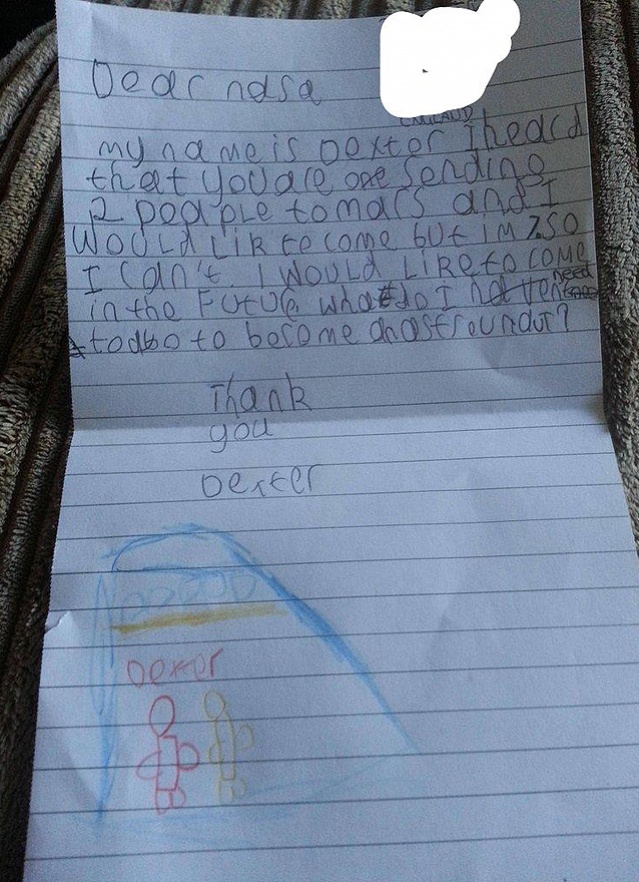 Dear nasa
ENGLAND
my name is Dexter I heard
that you are sending
2 peaple to mars and I
WOULD LIK to come but im 7 SO
I can't. I WOULD LIKE to COME
in the FUTUre what do I need
to do to become an astroundut?
Thank
you
Dexter
Dexter